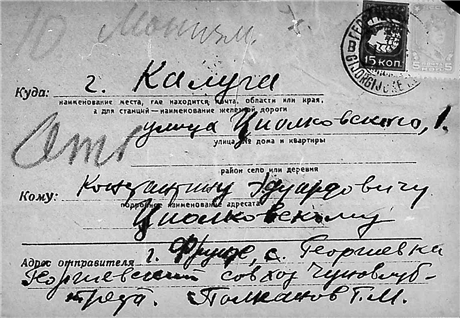 10 Монизм
15 КОП.
Куда: г. Калуга
наименование места, где находится почта, области или края,
а для станций—наименование железной дороги
улица Циолковского, 1.
улица № дома и квартиры
район село или деревня
Кому: Константину Эдуардовичу
подробное наименование адресата
Циолковскому
Адрес отправителя г. Фрунзе, с. Георгиевка
Георгиевский совхоз
треста. Полканов Г.М.